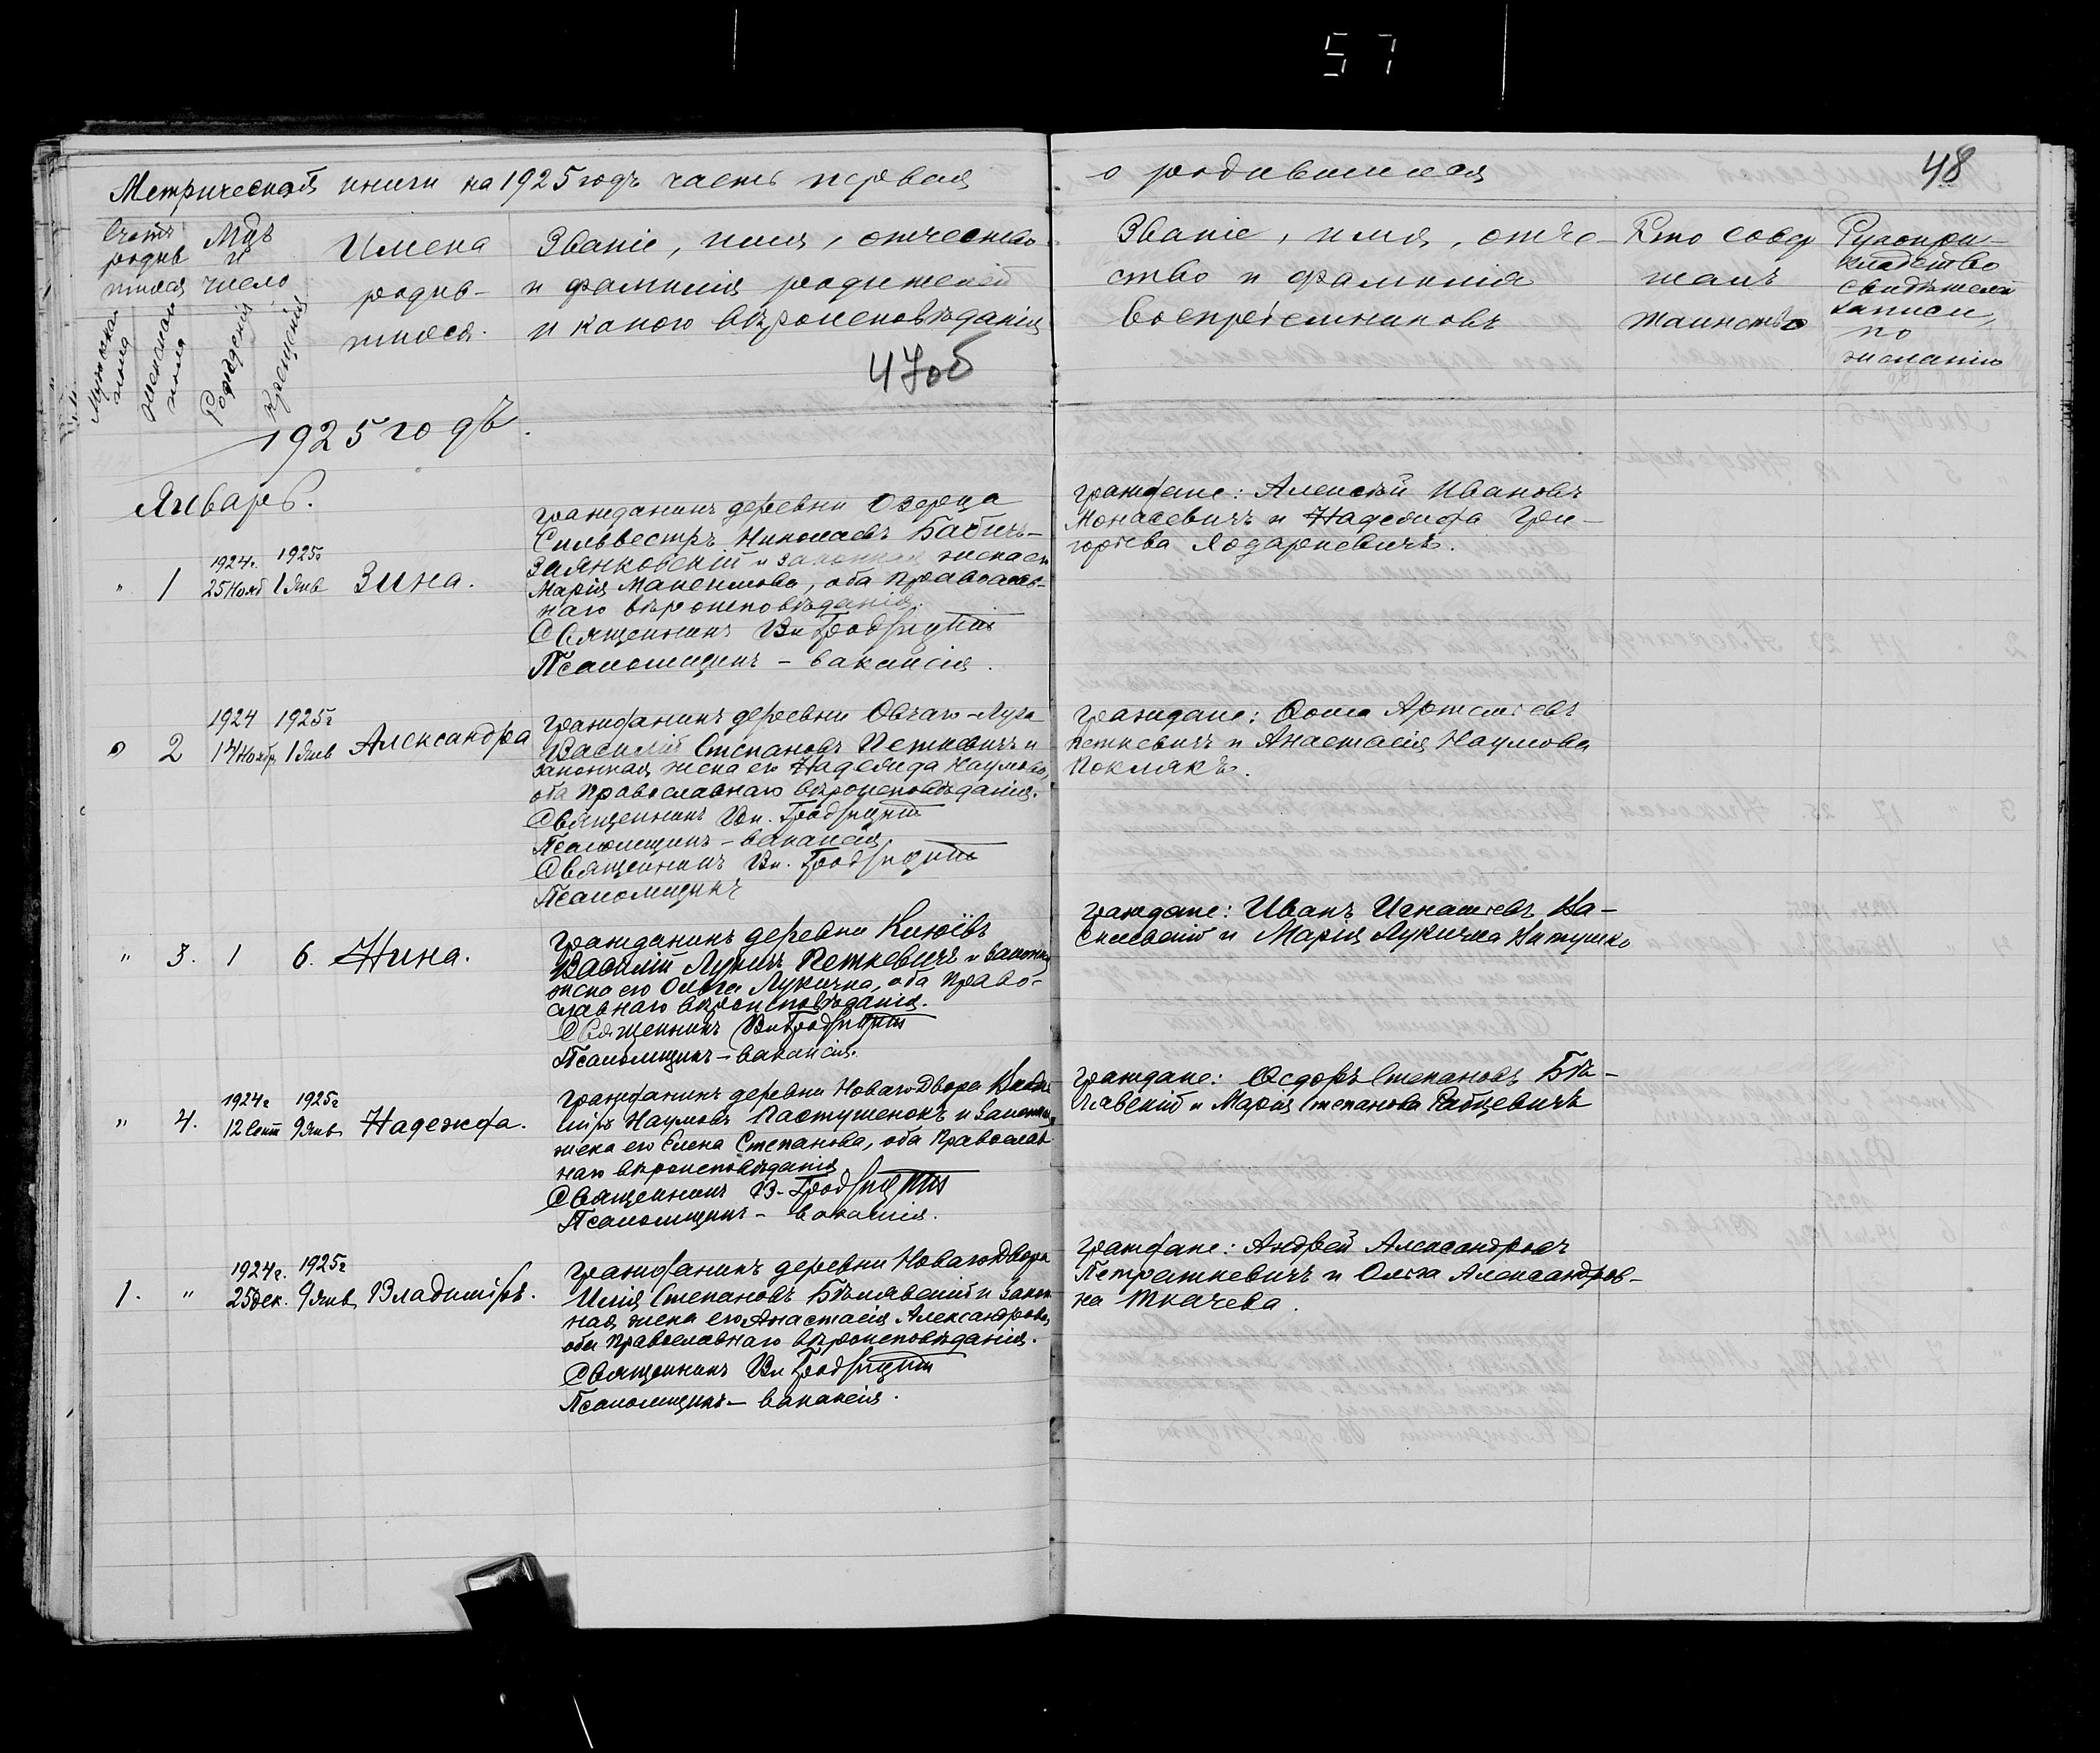 57
48
Метрической книги на 1925 годъ часть первая
о родившихся
Счетъ родив шихся
Мужеска пола
женскаго пола
Мцъ и число
Рожденія
Крещенія
Имена
родив-
шихся.
Званіе, имя, отчество
и фамилія родителей
и какого вѣроисповѣданія
Званіе, имя, отче-
ство и фамилія
Воспріемниковъ
Кто совер
шалъ
таинство
Рукопри-
кладство
свидѣтелей
записи,
по
желанію
47об
1925 годъ.
Январь.
" 1
1924г. 25 Нояб
1925г 1 Янв
Зина.
гражданинъ деревни Озереца
Сильвестръ Николаевъ Бабичъ-
Залянковскій и законная жена его
Марія Мапеимова, оба Православ-
наго вѣроисповѣданія.
Священникъ Вл
Псаломщикъ - вакансія.
граждане: Алексѣй Ивановъ
Монасевичъ и Надежда Гри-
горьева Лодарпевичъ.
" 2
1924 17 Ноябр
1925г 1 Янв
Александра
гражданинъ деревни Овчаго-Луга
Василій Степановъ Петкевичъ и
законная жена его Надежда Наумова,
оба Православнаго вѣроисповѣданія.
Священникъ Вл.
Псаломщикъ - вакансія
Священникъ Вл.
Псаломщикъ
Граждане: Ѳома Артемьевъ
Петкевичъ и Анастасія Наумова
Поклякъ.
" 3. 1 6. Нина.
Гражданинъ деревни
Василій Лукичъ Петкевичъ и законная
жена его Ольга Лукична, оба Право-
славнаго вѣроисповѣданія.
Священникъ Вл
Псаломщикъ - вакансія.
Граждане: Иванъ Игнатьевъ
и Марія Лукична Витушко
" 4.
1924г 12 Сент
1925г 9 Янв
Надежда.
гражданинъ деревни Новаго-Двора Влади
міръ Наумовъ Пастушенокъ и законная
жена его Елена Степанова, оба Православ
наго вѣроисповѣданія
Священникъ В.
Псаломщикъ - вакансія.
Граждане: Ѳедоръ Степановъ Бѣ-
лявскій и Марія Степанова Рабцевичъ
1. "
1924г. 25 дек.
1925г 9 Янв
Владиміръ.
гражданинъ деревни Новаго Двора
Илія Степановъ Бѣлявскій и закон
ная жена его Анастасія Александрова,
оба Православнаго вѣроисповѣданія.
Священникъ Вл
Псаломщикъ - вакансія.
Граждане: Андрей Александровъ
Петрашкевичъ и Ольга Александров-
на Ткачева.